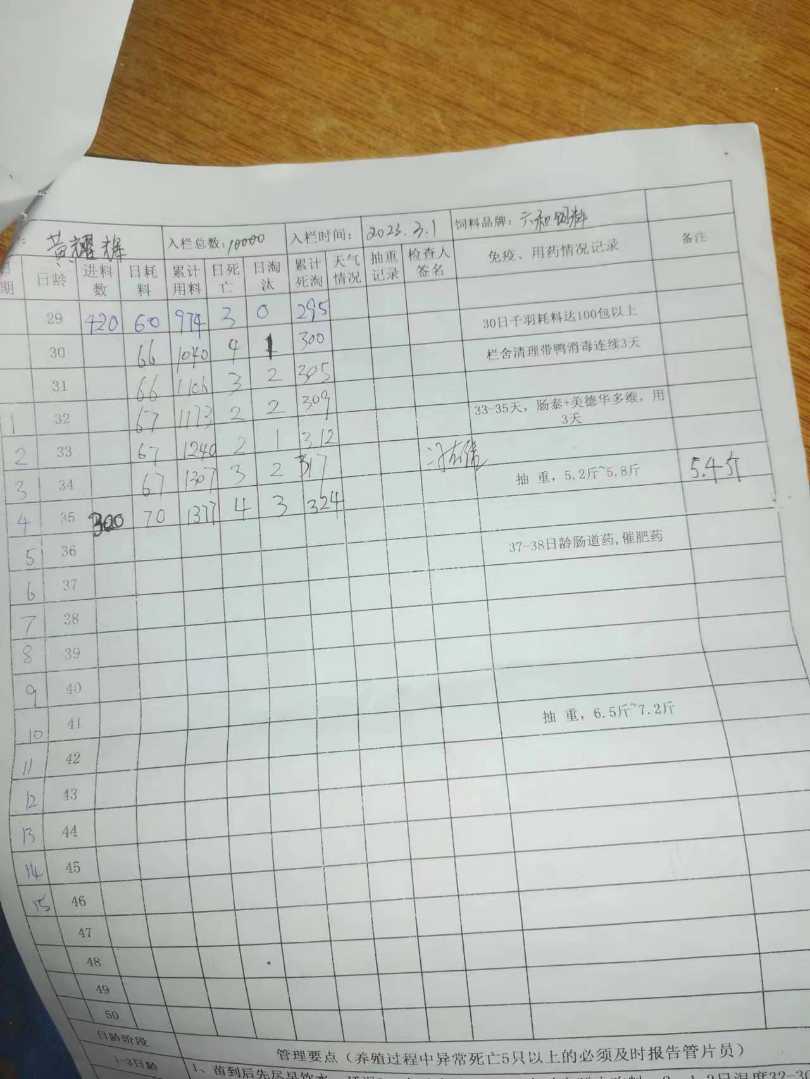 黄耀辉 入栏总数：10000 入栏时间： 2023.3.1 饲料品牌： 六和饲料
期 日龄 进料数 日耗料 累计用料 日死亡 日淘汰 累计死淘 天气情况 抽重记录 检查人签名 免疫、用药情况记录 备注
29 420 60 974 3 0 295 30日千羽耗料达100包以上
30 66 1040 4 1 300 栏舍清理带鸭消毒连续3天
31 66 1106 3 2 305
1 32 67 1173 2 2 309 33-35天，肠泰+美德华多维，用3天
2 33 67 1240 2 1 312
3 34 67 1307 3 2 317 抽 重，5.2斤~5.8斤 5.4斤
4 35 300 70 1377 4 3 324
5 36 37-38日龄肠道药,催肥药
6 37
7 38
8 39
9 40
10 41 抽 重，6.5斤~7.2斤
11 42
12 43
13 44
14 45
15 46
47
48
49
50
日龄阶段 管理要点（养殖过程中异常死亡5只以上的必须及时报告管片员）
1-3日龄